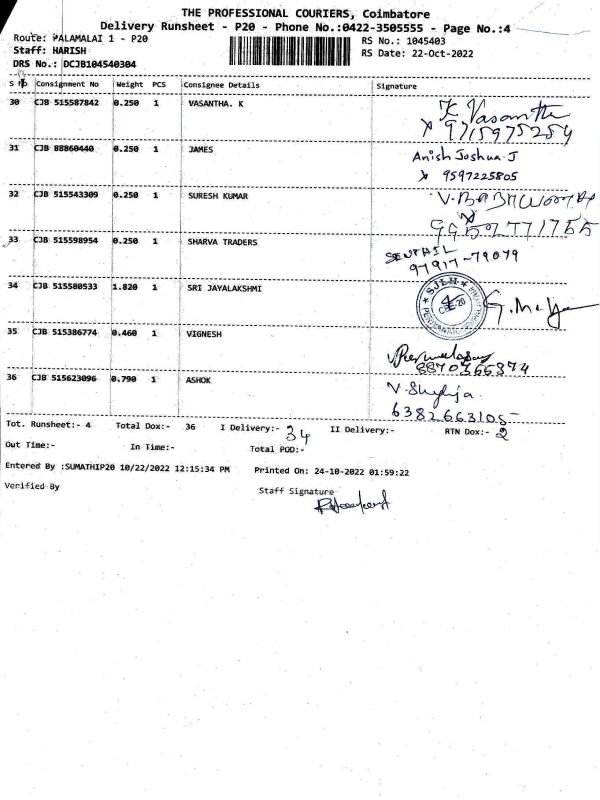 THE PROFESSIONAL COURIERS, Coimbatore
Delivery Runsheet - P20 - Phone No.:0422-3505555 - Page No.:4
Route: PALAMALAI 1 - P20
RS No.: 1045403
Staff: HARISH
RS Date: 22-Oct-2022
DRS No.: DCJB104540304
S No Consignment No Weight PCS Consignee Details Signature
30 CJB 515587842 0.250 1 VASANTHA. K K. Vasantha
9715975254
31 CJB 88860440 0.250 1 JAMES Anish Joshua.J
9597225805
32 CJB 515543309 0.250 1 SURESH KUMAR
33 CJB 515598954 0.250 1 SHARVA TRADERS SENTHIL
97917-79079
34 CJB 515580533 1.820 1 SRI JAYALAKSHMI
35 CJB 515386774 0.460 1 VIGNESH
8870366374
36 CJB 515623096 0.790 1 ASHOK
6382663105
Tot. Runsheet:- 4 Total Dox:- 36 I Delivery:- 34 II Delivery:- RTN Dox:- 2
Out Time:- In Time:- Total POD:-
Entered By :SUMATHIP20 10/22/2022 12:15:34 PM Printed On: 24-10-2022 01:59:22
Verified By Staff Signature